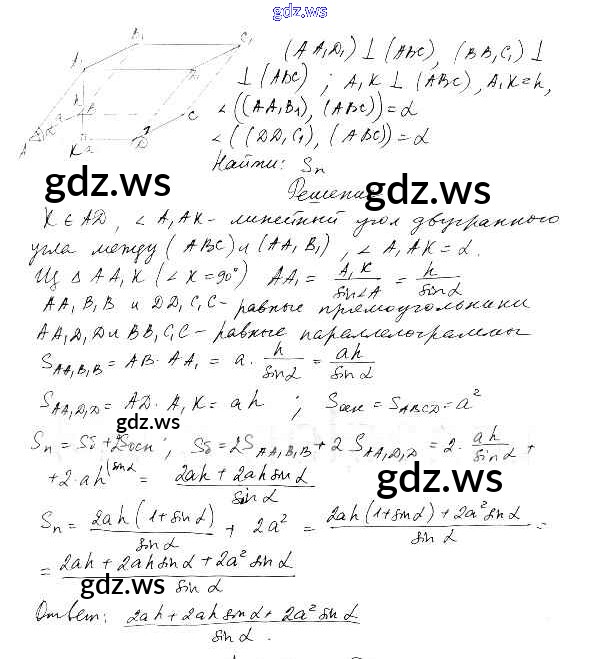 gdz.ws
A₁ B₁ C₁ D₁ A B C D K a h α
(AA₁D₁) ⊥ (ABC), (BB₁C₁) ⊥
⊥ (ABC); A₁K ⊥ (ABC), A₁K = h,
∠((AA₁B₁), (ABC)) = α
∠((DD₁C₁), (ABC)) = α
Найти: Sп
gdz.ws
gdz.ws
Решение
K ∈ AD, ∠A₁AK - линейный угол двугранного
угла между (ABC) и (AA₁B₁), ∠A₁AK = α.
Из △AA₁K (∠K = 90°) AA₁ = A₁K / sin∠A = h / sinα
AA₁B₁B и DD₁C₁C - равные прямоугольники
AA₁D₁D и BB₁C₁C - равные параллелограммы
S AA₁B₁B = AB · AA₁ = a · h / sinα = ah / sinα
S AA₁D₁D = AD · A₁K = ah ; Sосн = S ABCD = a²
gdz.ws
Sп = Sб + 2Sосн ; Sб = 2S AA₁B₁B + 2S AA₁D₁D = 2 · ah / sinα +
+ 2 · ah (sinα = 2ah + 2ah sinα / sinα
gdz.ws
Sп = 2ah(1 + sinα) / sinα + 2a² = 2ah(1 + sinα) + 2a² sinα / sinα =
= 2ah + 2ah sinα + 2a² sinα / sinα
gdz.ws
Ответ: 2ah + 2ah sinα + 2a² sinα / sinα .